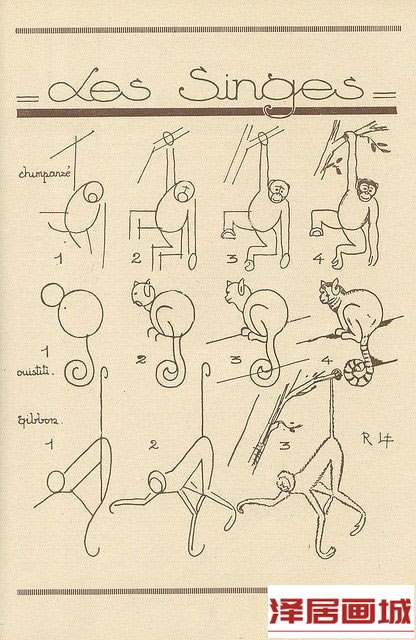 Les Singes
chimpanzé
1 2 3 4
1 2 3 4
ouistiti.
Gibbon.
1 2 3
泽居画城